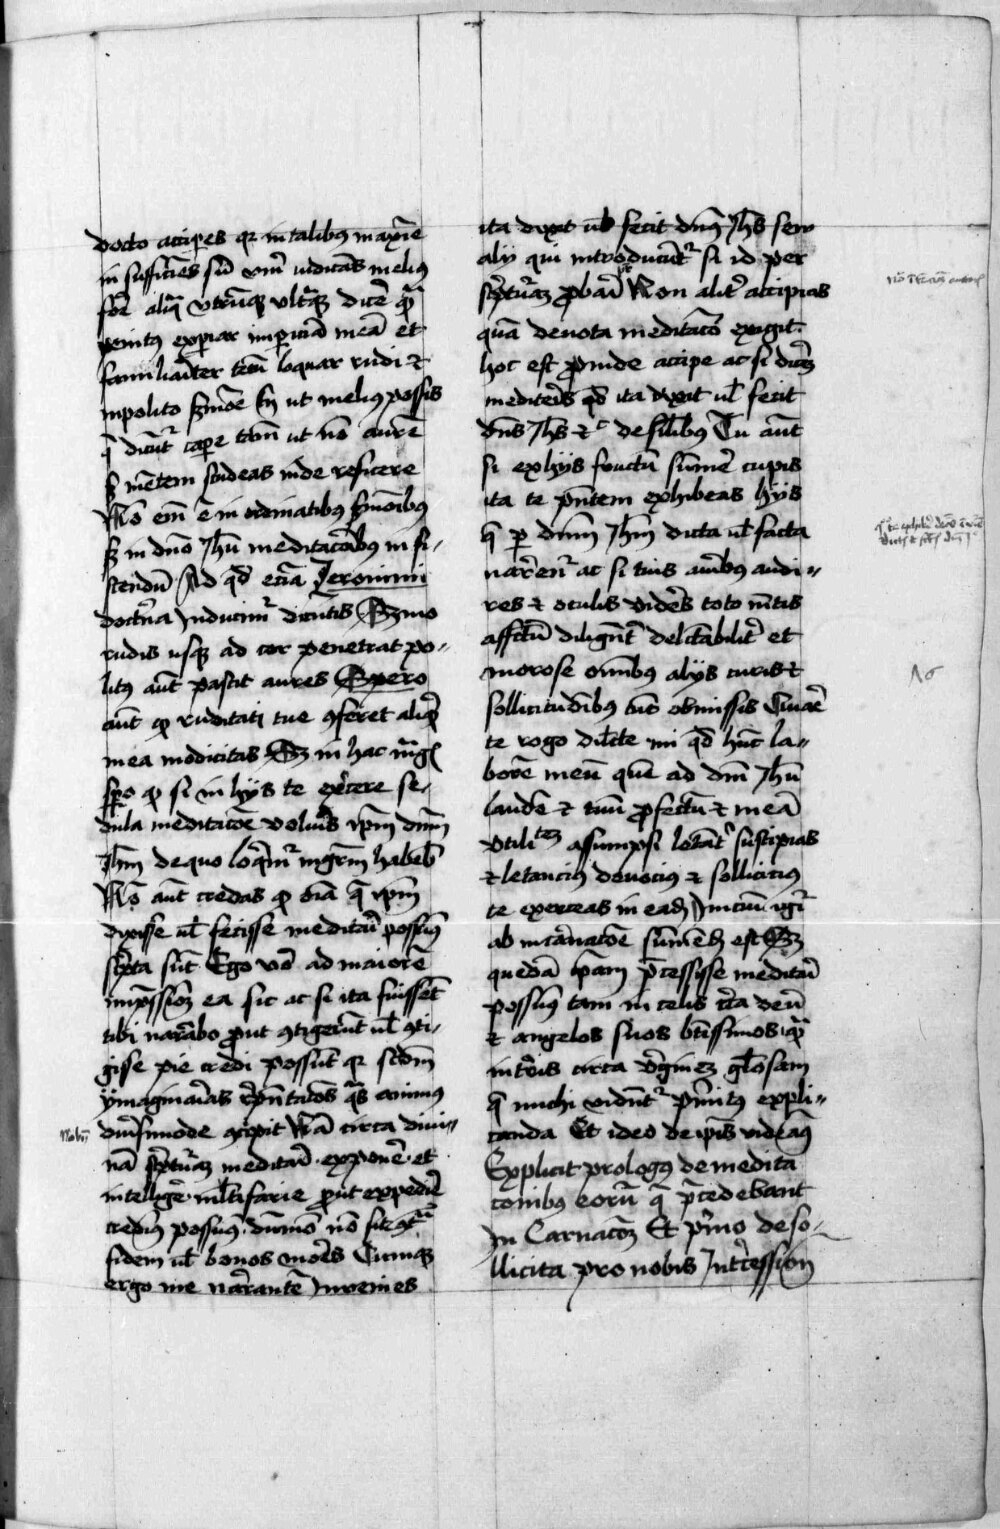 docto accipies qr in talibus maxime
in sufficiens sum vnum iudicans melius
fore aliqua vtrumque vltraque dicere quam
penitus experiar impericiam meam et
familiariter tecum loquar rudi et
inpolito sermone tum ut melius possis
que dicuntur capere tum ut non aurem
sed mentem studeas inde reficere
Non enim est in ordinatibus sermonibus
sed in domino Jhesu meditacionibus in si-
stendum Ad quod eciam Jeronimi
doctrina Inducimur dicentis Sermo
rudis usque ad cor penetrat po-
litus autem pascit aures Spero
autem quod ruditati tue conferet aliquid
mea modicitas Sed in hac magis
spero quod si in hijs te exercere se-
dula meditacione volueris ipsum dominum
Jhesum de quo loquimur magistrum habebis
Non autem credas quod omnia que ipsum
dixisse vel fecisse meditari possumus
scripta sunt Ego vero ad maiorem
impressionem ea sic ac si ita fuissent
tibi narrabo prout contigerunt vel conti-
gisse pie credi possunt qr secundum
ymaginarias representaciones quas animus
diuersimode accipit Nam circa diui-
nam scripturam meditari exponere et
intelligere multifarie prout expedire
credimus possumus dummodo non sit contra
fidem vel bonos mores Cumque
ergo me narrantem Invenies
ita dixit vel fecit dominus Jhesus seu
alij qui introducuntur si id per
scripturam probari Non aliter accipias
quam deuota meditacio exigit
hoc est proinde accipe ac si dicerem
mediteris quod ita dixit vel fecit
dominus Jhesus etc de similibus Tu autem
si ex hijs fructum sumere cupis
ita te presentem exhibeas hijs
que per dominum Jhesum dicta vel facta
narrentur ac si tuis auribus audi-
res et oculis videres toto mentis
affectu diligenter delectabiliter et
morose omnibus alijs curis et
sollicitudinibus tunc obmissis Quare
te rogo dilecte mi quod hunc la-
borem meum quem ad domini Jhesu
laudem et tuum profectum et meam
vtilitatem assumpsi letanter suscipias
et letancius deuocius et sollicicius
te exerceas in eadem Inicium igitur
ab incarnacione sumendum est Sed
quedam ipsam precessisse meditari
possumus tam in celis circa deum
et angelos suos beatissimos quam
in terris circa virginem gloriosam
que michi videntur primitus expli-
canda Et ideo de ipsis videamus
Explicit prologus de medita
conibus eorum que precedebant
In Carnacionem Et primo de so-
llicita pro nobis Intercession